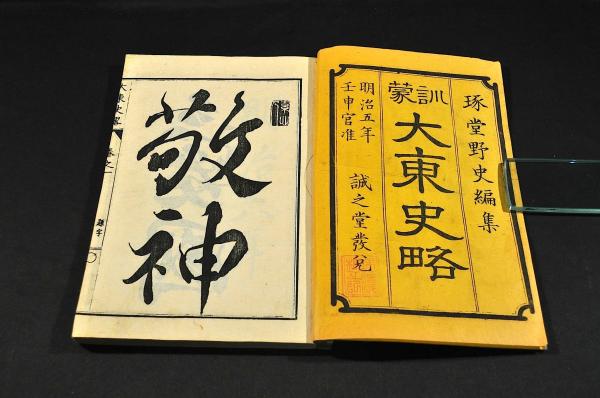 琢堂野史編集
訓蒙
大東史略
明治五年
壬申官准
誠之堂發兌
敬神
大東史畧